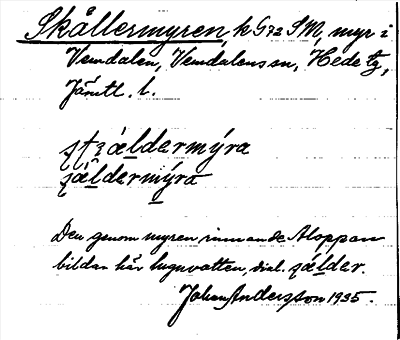 Skållermyren, k G72 SM, myr i
Vemdalen, Vemdalens sn, Hede tg,
Jämtl. l.
ståldermýra
såldermýra
Den genom myren rinnande Aloppan
bildar här lugnvatten, dial. sålder.
Johan Andersson 1935.